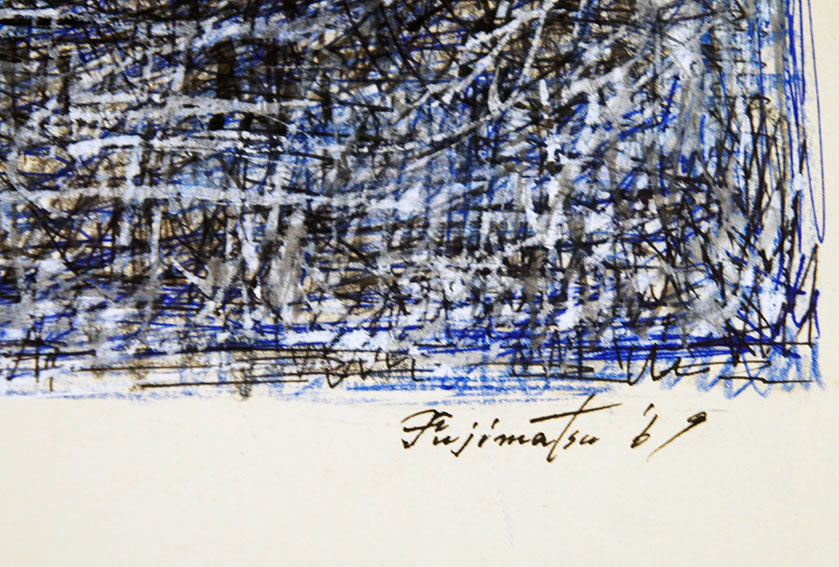 Fujimatsu '69